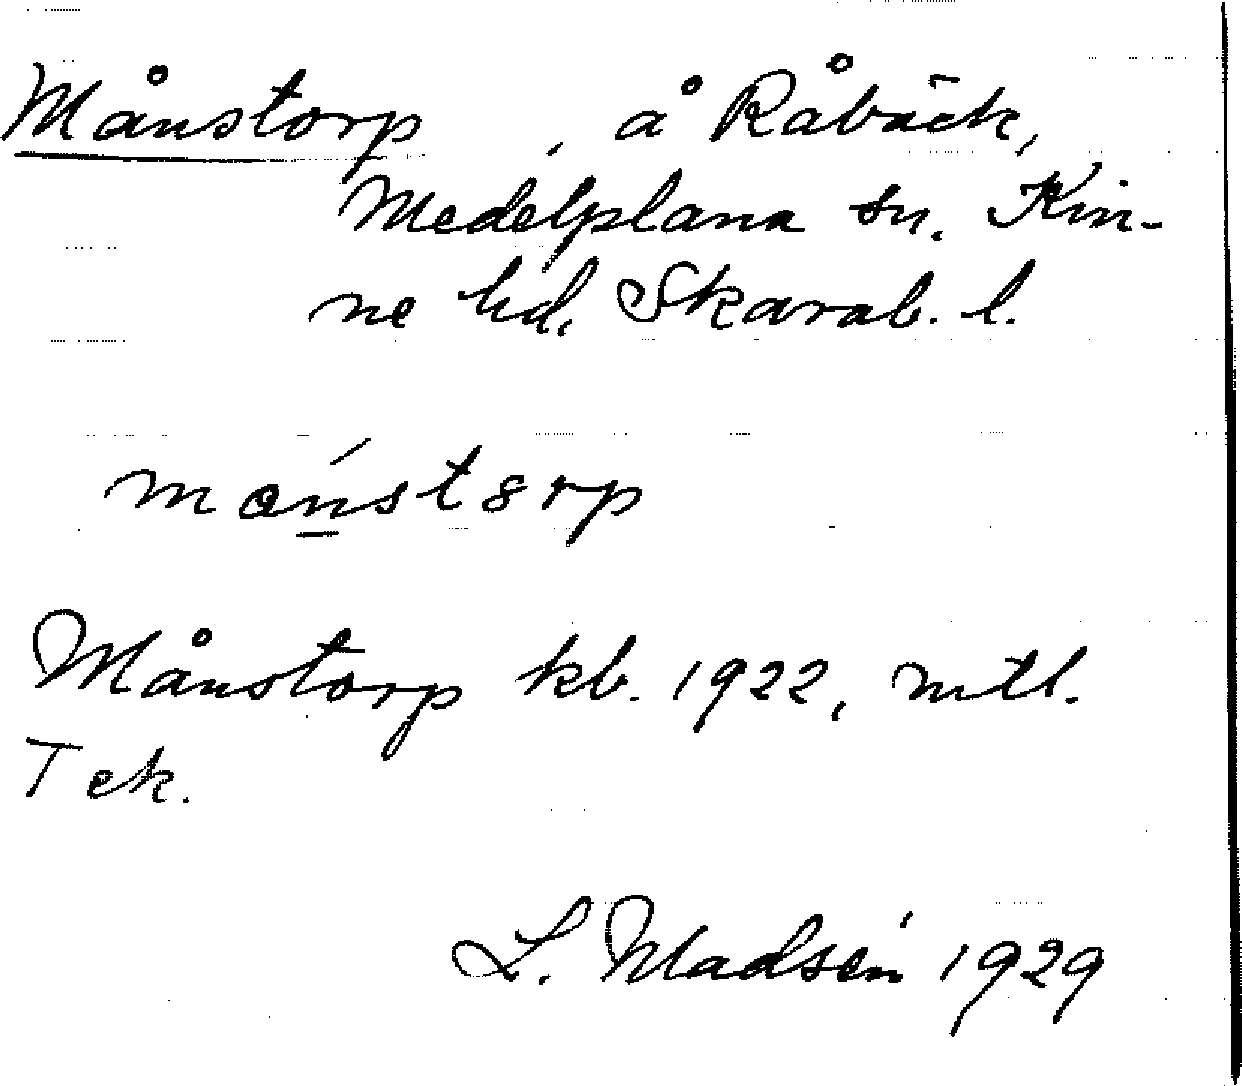 Månstorp, å Råbäck,
Medelplana sn. Kin-
ne hd. Skarab. l.
Månstorp kb. 1922, mtl.
Tek.
L. Madsén 1929